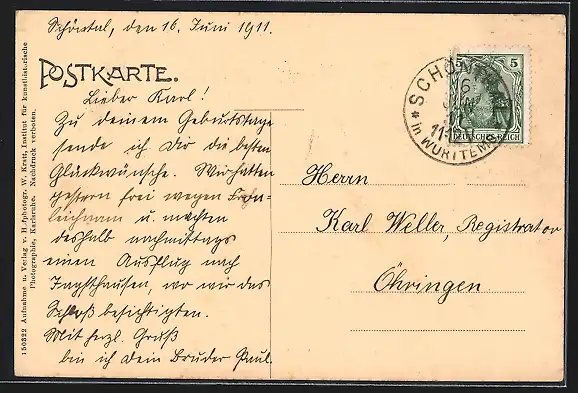 Schöntal, den 16. Juni 1911.
POSTKARTE.
Lieber Karl!
Zu deinem Geburtstage
sende ich Dir die besten
Glückwünsche. Wir hatten
gestern frei wegen Fron-
leichnam u. machten
deshalb nachmittags
einen Ausflug nach
Jagsthausen, wo wir das
Schloß besichtigten.
Mit herzl. Gruß
bin ich dein Bruder Paul.
Herrn
Karl Weller, Registrator
Öhringen
5 5
DEUTSCHES REICH
SCHÖNTAL
11-12
* in WÜRTTEMB.
150322 Aufnahme u. Verlag v. H.photogr. W. Kratt, Institut für künstlerische
Photographie, Karlsruhe. Nachdruck verboten.